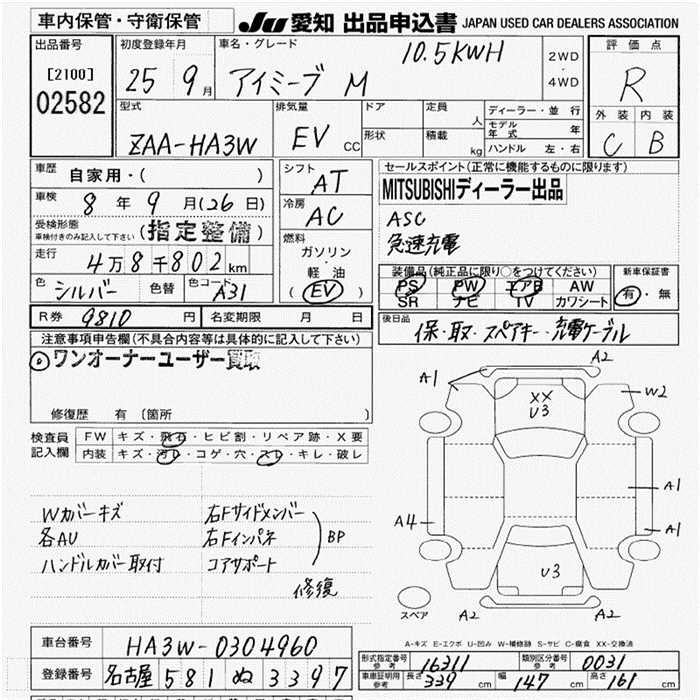 車内保管・守衛保管
JU 愛知 出品申込書 JAPAN USED CAR DEALERS ASSOCIATION
出品番号
[2100]
02582
初度登録年月
25 9月
車名・グレード
10.5KWH
アイミーブ M
2WD
・
4WD
評価点
R
外装 内装
C B
型式
ZAA-HA3W
排気量
EV CC
ドア
形状
定員 人
積載 kg
ディーラー・並行
モデル年式 年
ハンドル 左・右
車歴
自家用・( )
車検
8年 9月(26日)
受検形態
車検付きのみ記入して下さい
(指定整備)
走行
4万8千802km
色 シルバー 色替 色コード A31
シフト
AT
冷房
AC
燃料
ガソリン
・
軽油
(EV)
セールスポイント(正常に機能するものに限ります)
MITSUBISHIディーラー出品
ASC
急速充電
装備品(純正品に限り○をつけてください)
PS PW エアB AW
SR ナビ TV カワシート
新車保証書
有・無
R券 9810 円 名変期限 月 日
後日品
保・取・スペアキー・充電ケーブル
注意事項申告欄(不具合内容等は具体的に記入して下さい)
◎ワンオーナーユーザー買取
修復歴 有 〔箇所 〕
検査員記入欄
FW キズ・飛石・ヒビ割・リペア跡・X要
内装 キズ・汚レ・コゲ・穴・スレ・キレ・破レ
Wカバーキズ
各AU
ハンドルカバー取付
右Fサイドメンバー
右Fインパネ
コアサポート
BP
修復
A1
A2
XX
U3
W2
A4
A1
A1
U3
A2
A2
スペア
A-キズ E-エクボ U-凹み W-補修跡 S-サビ C-腐食 XX-交換済
車台番号 HA3W-0304960
登録番号 名古屋 581 ぬ 3397
形式指定番号 参考 16311 類別区分番号 参考 0031
車車証明用 参考 長さ 339 cm 幅 147 cm 高さ 161 cm